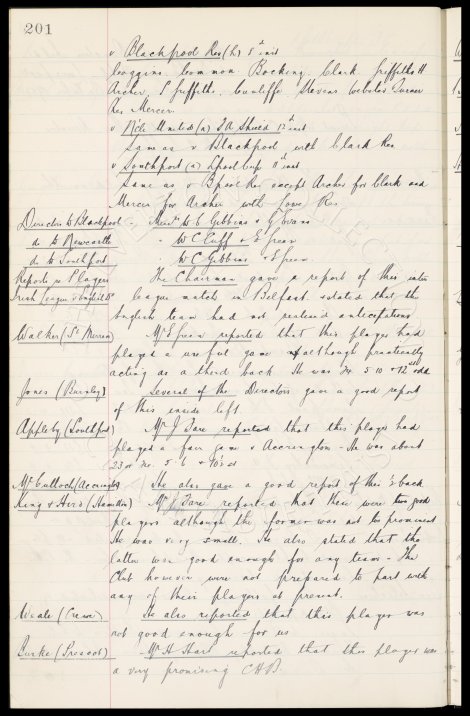 201
v Blackpool Res (h) 5th inst
Coggins Common Bocking Clark Griffiths H
Archer T Griffiths Cunliffe Stevens Webster Turner
Res Mercer
v N'cle United (a) FA Shield 12th inst
Same as v Blackpool with Clark Res
v Southport (a) L'pool Cup 8th inst
Same as v B'pool Res except Archer for Clark and
Mercer for Archer with Res
Directors to Blackpool Messrs W C Gibbins & G Evans
do to Newcastle " W C Cuff & E Green
do to Southport " W C Gibbins & E Green
Reports re Players The Chairman gave a report of this inter
Irish League v English Do league match in Belfast & stated that the
English team had not realised anticipations
Walker (St Mirren) Mr E Green reported that this player had
played a useful game although practically
acting as a third back He was 24 5-10 & 12st odd
Jones (Burnley) Several of the Directors gave a good report
of this inside left
Appleby (Southport) Mr J Fare reported that this player had
played a fair game v Accrington - He was about
23 or 5-6
McCulloch (Accrington) He also gave a good report of this back
King & Hird (Hamilton) Mr J Fare reported that these were two good
players although the former was not so prominent
He was very small. He also stated that the
latter was good enough for any team - The
Club however were not prepared to part with
any of their players at present.
(Crewe) He also reported that this player was
not good enough for us
Burke (Prescot) Mr H Hart reported that this player was
a very promising C.H.B.